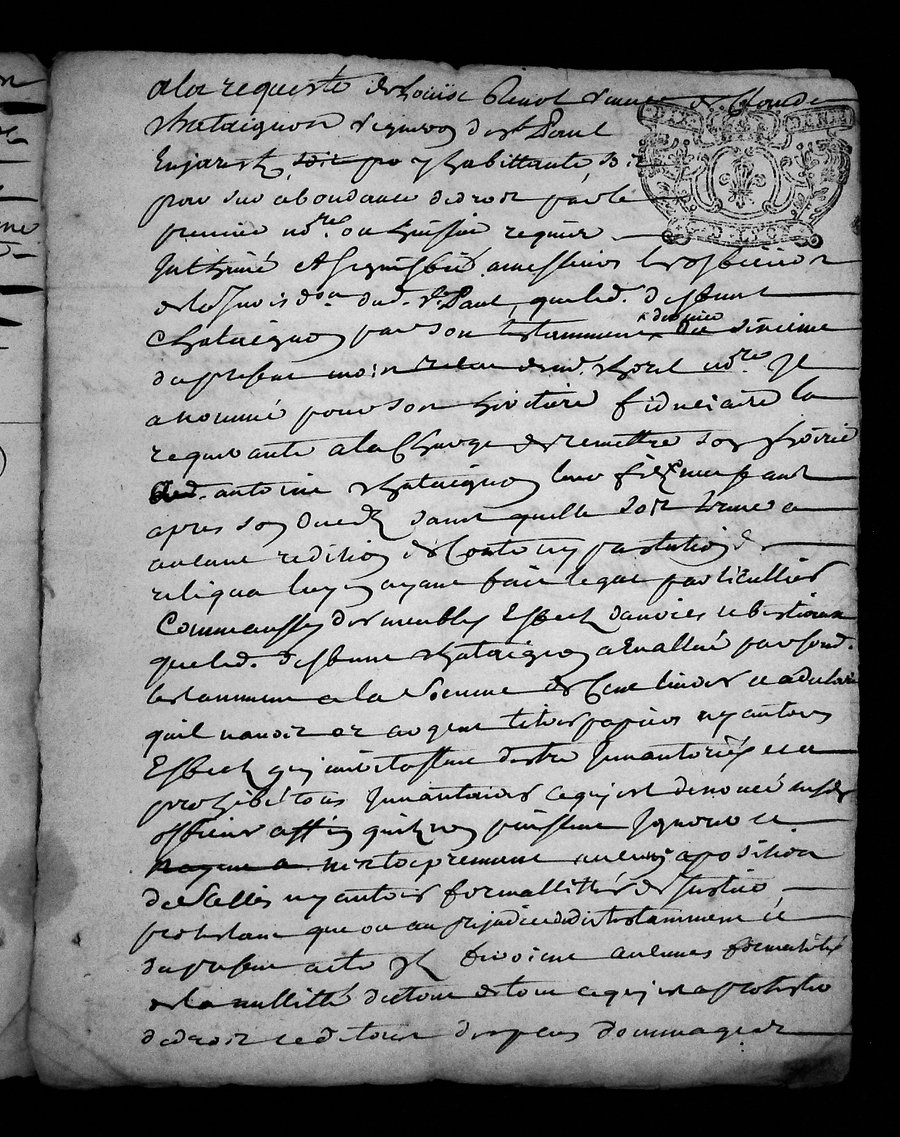 a la requeste de Louise Pinot veuve de Claude
Chataignon vigneron de St Paul
En jarest, soit po y habittante, soit
pour sur abondance de droit par le
premier nore. ou huissier requier
Inthimé et signiffié a messieurs les officiers
de la Juridon dud. St Paul, que led. deffunt
Chataignon par son testamment du
du present mois reçu nore. Il
a nommé pour son héritière fiduciaire la
requerante a la Charge de remettre son hoirie
aud. antoine Chataignon leur fils
apres son deced sans quelle soit tenue a
aucune redition de Conte ny prestation de
reliqua luy ayant fait legat particullier
des meubles Effects danrées et bestiaux
que led. deffunt Chataignon a Evallué par sond.
testamment a la somme de Cent livres et a declaré
quil navoit or argent titres papiers ny autres
Effects quy meritassent destre Inventoriés et a
prohibé tous Inventaires ce quy est denoncé auxd.
officiers affin quils nen puissent Ignorer et
aucune aposition
de scellés ny autres formallittés de Justice
protestant que ou au prejudice dud. testamment et
du present acte Ils feroient aucunes formalités
de la nullitté du tout de tout ce quy est a protester
de droit et de tous depens dommages